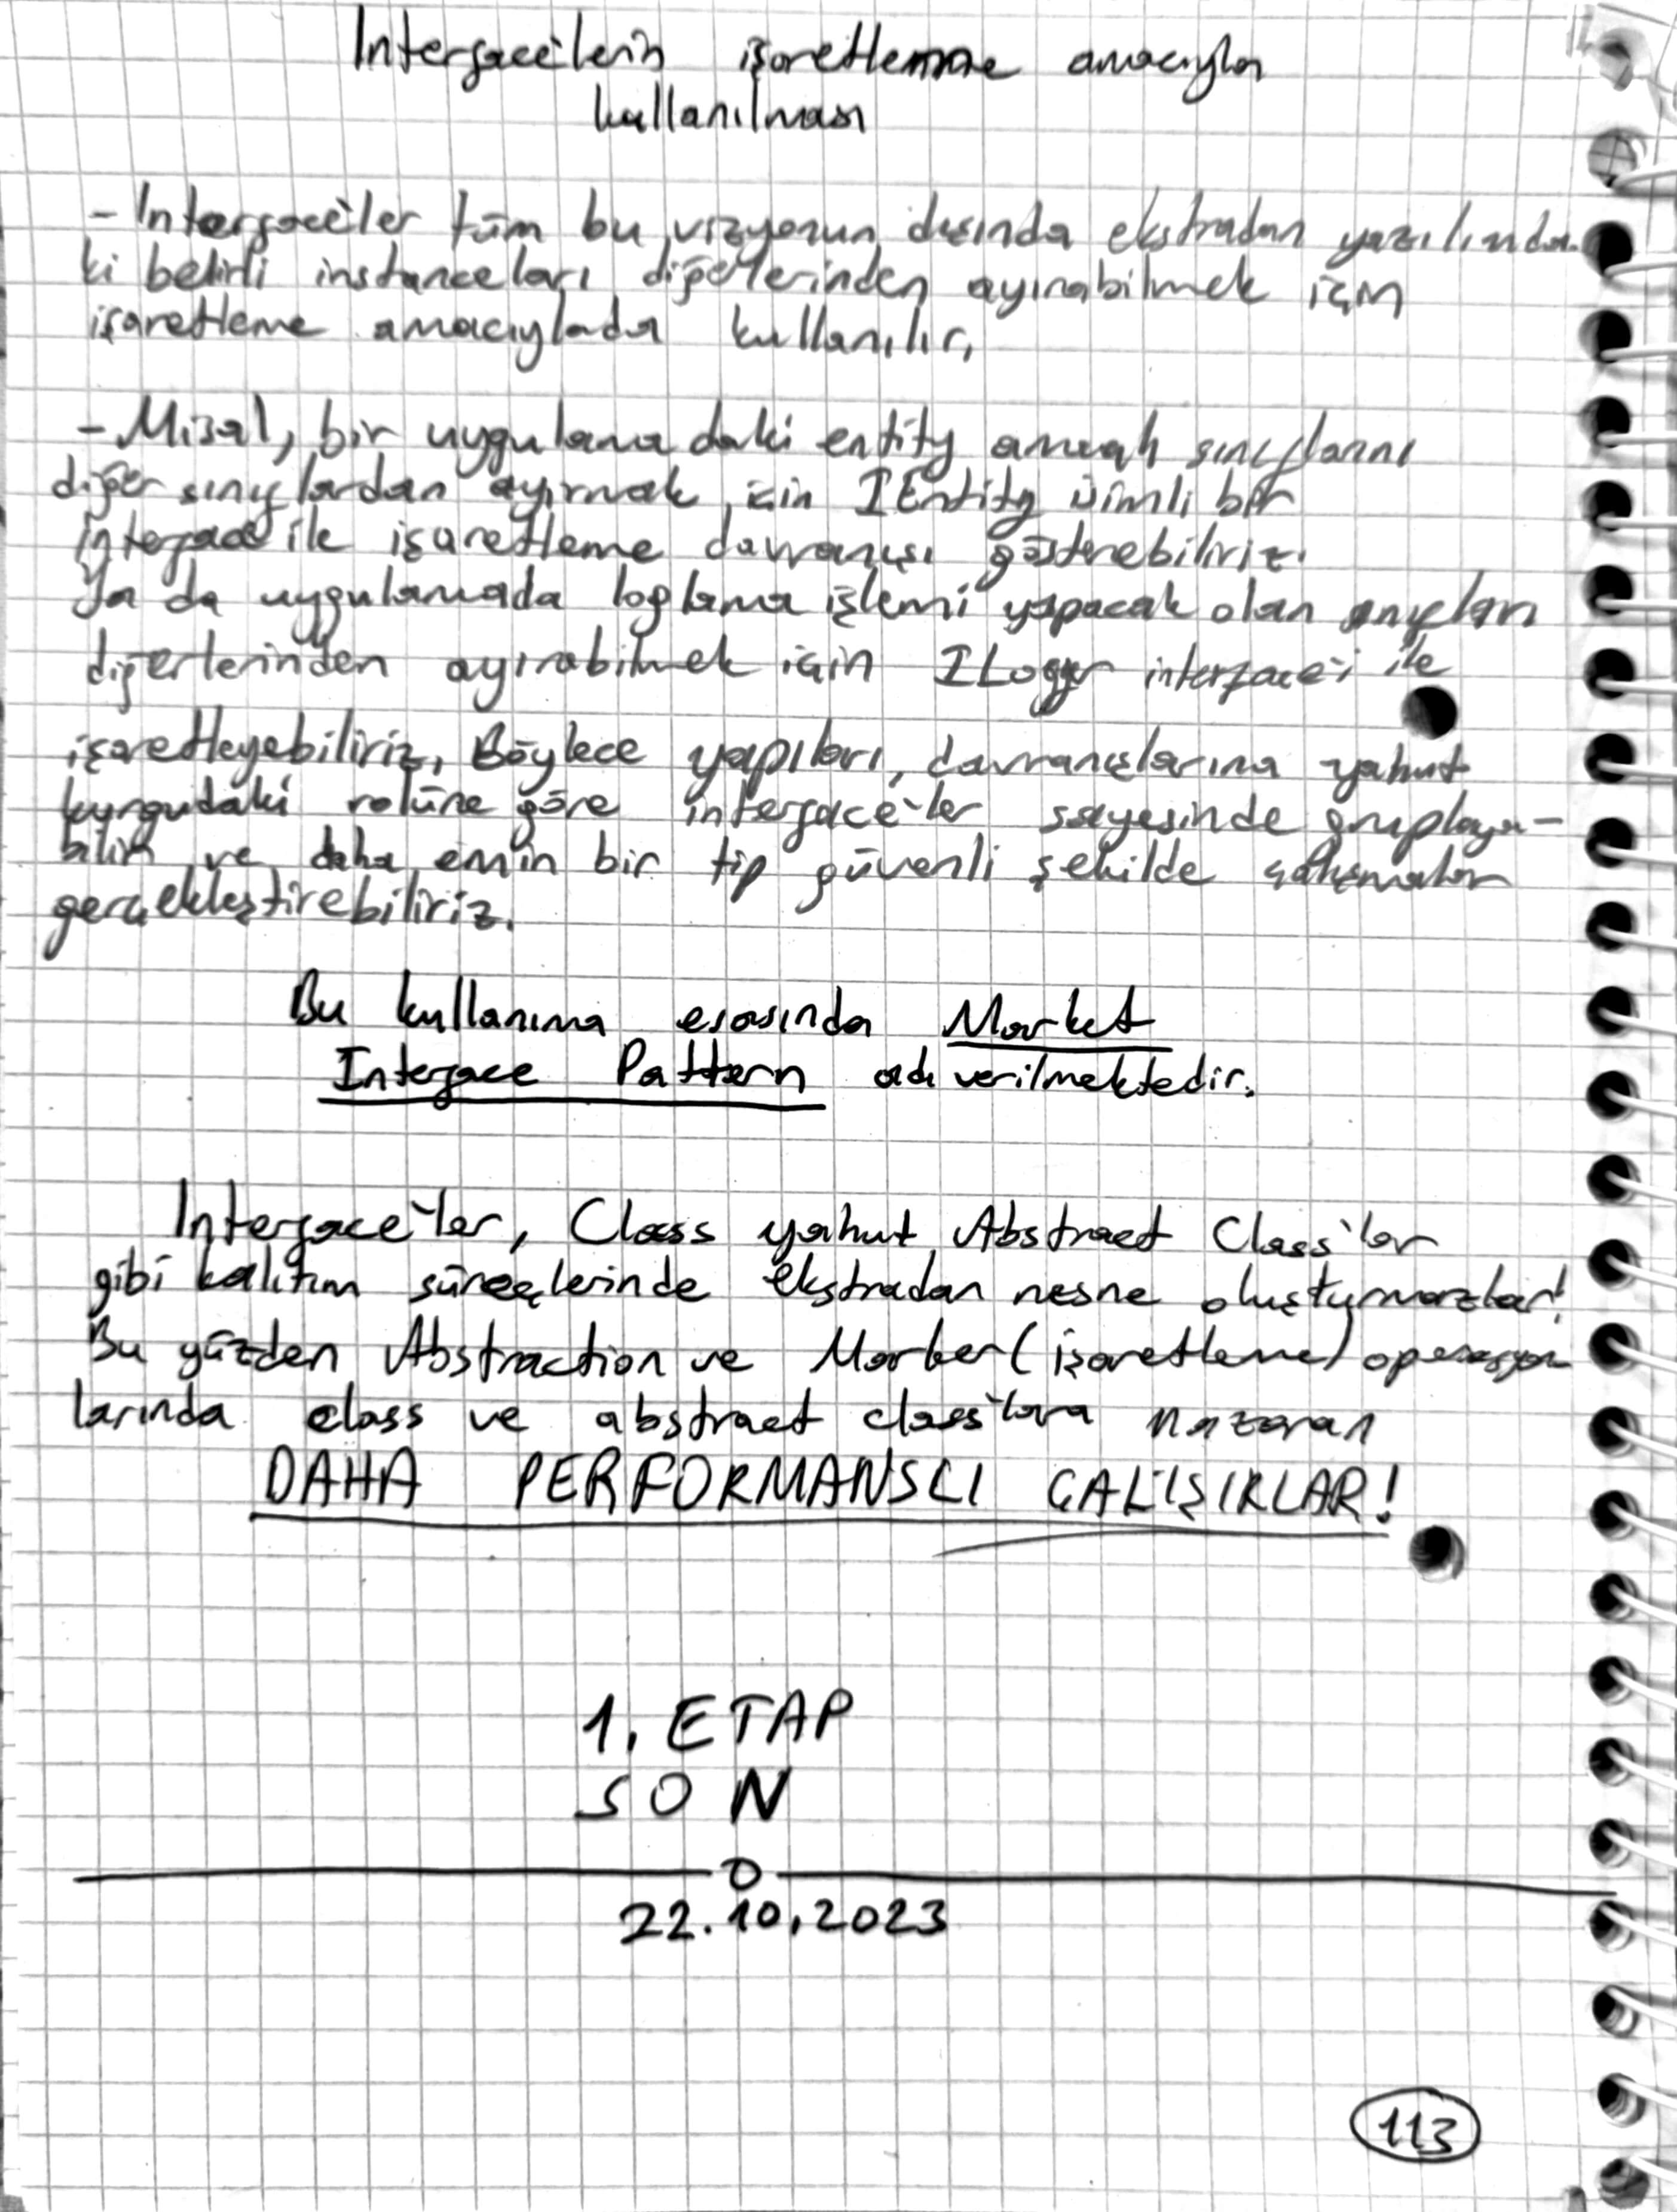 Interface'lerin işaretlenme amacıyla
kullanılması
- Interface'ler tüm bu vizyonun dışında ekstradan yazılımda
ki belirli instanceları diğerlerinden ayırabilmek için
işaretleme amacıylada kullanılır.
- Misal, bir uygulamadaki entity amaçlı sınıflarını
diğer sınıflardan ayırmak için IEntity isimli bir
interface ile işaretleme davranışı gösterebiliriz.
Ya da uygulamada loglama işlemi yapacak olan sınıfları
diğerlerinden ayırabilmek için ILogger interface'i ile
işaretleyebiliriz. Böylece yapıları, davranışlarına yahut
kurgudaki rolüne göre interface'ler sayesinde gruplaya-
bilir ve daha emin bir tip güvenli şekilde çalışmalar
gerçekleştirebiliriz.
Bu kullanıma esasında Market
Interface Pattern adı verilmektedir.
Interface'ler, Class yahut Abstract Class'lar
gibi kalıtım süreçlerinde ekstradan nesne oluşturmazlar!
Bu yüzden Abstraction ve Marker (işaretleme) operasyon
larında class ve abstract class'lara nazaran
DAHA PERFORMANSLI ÇALIŞIRLAR!
1. ETAP
SON
22.10.2023
113